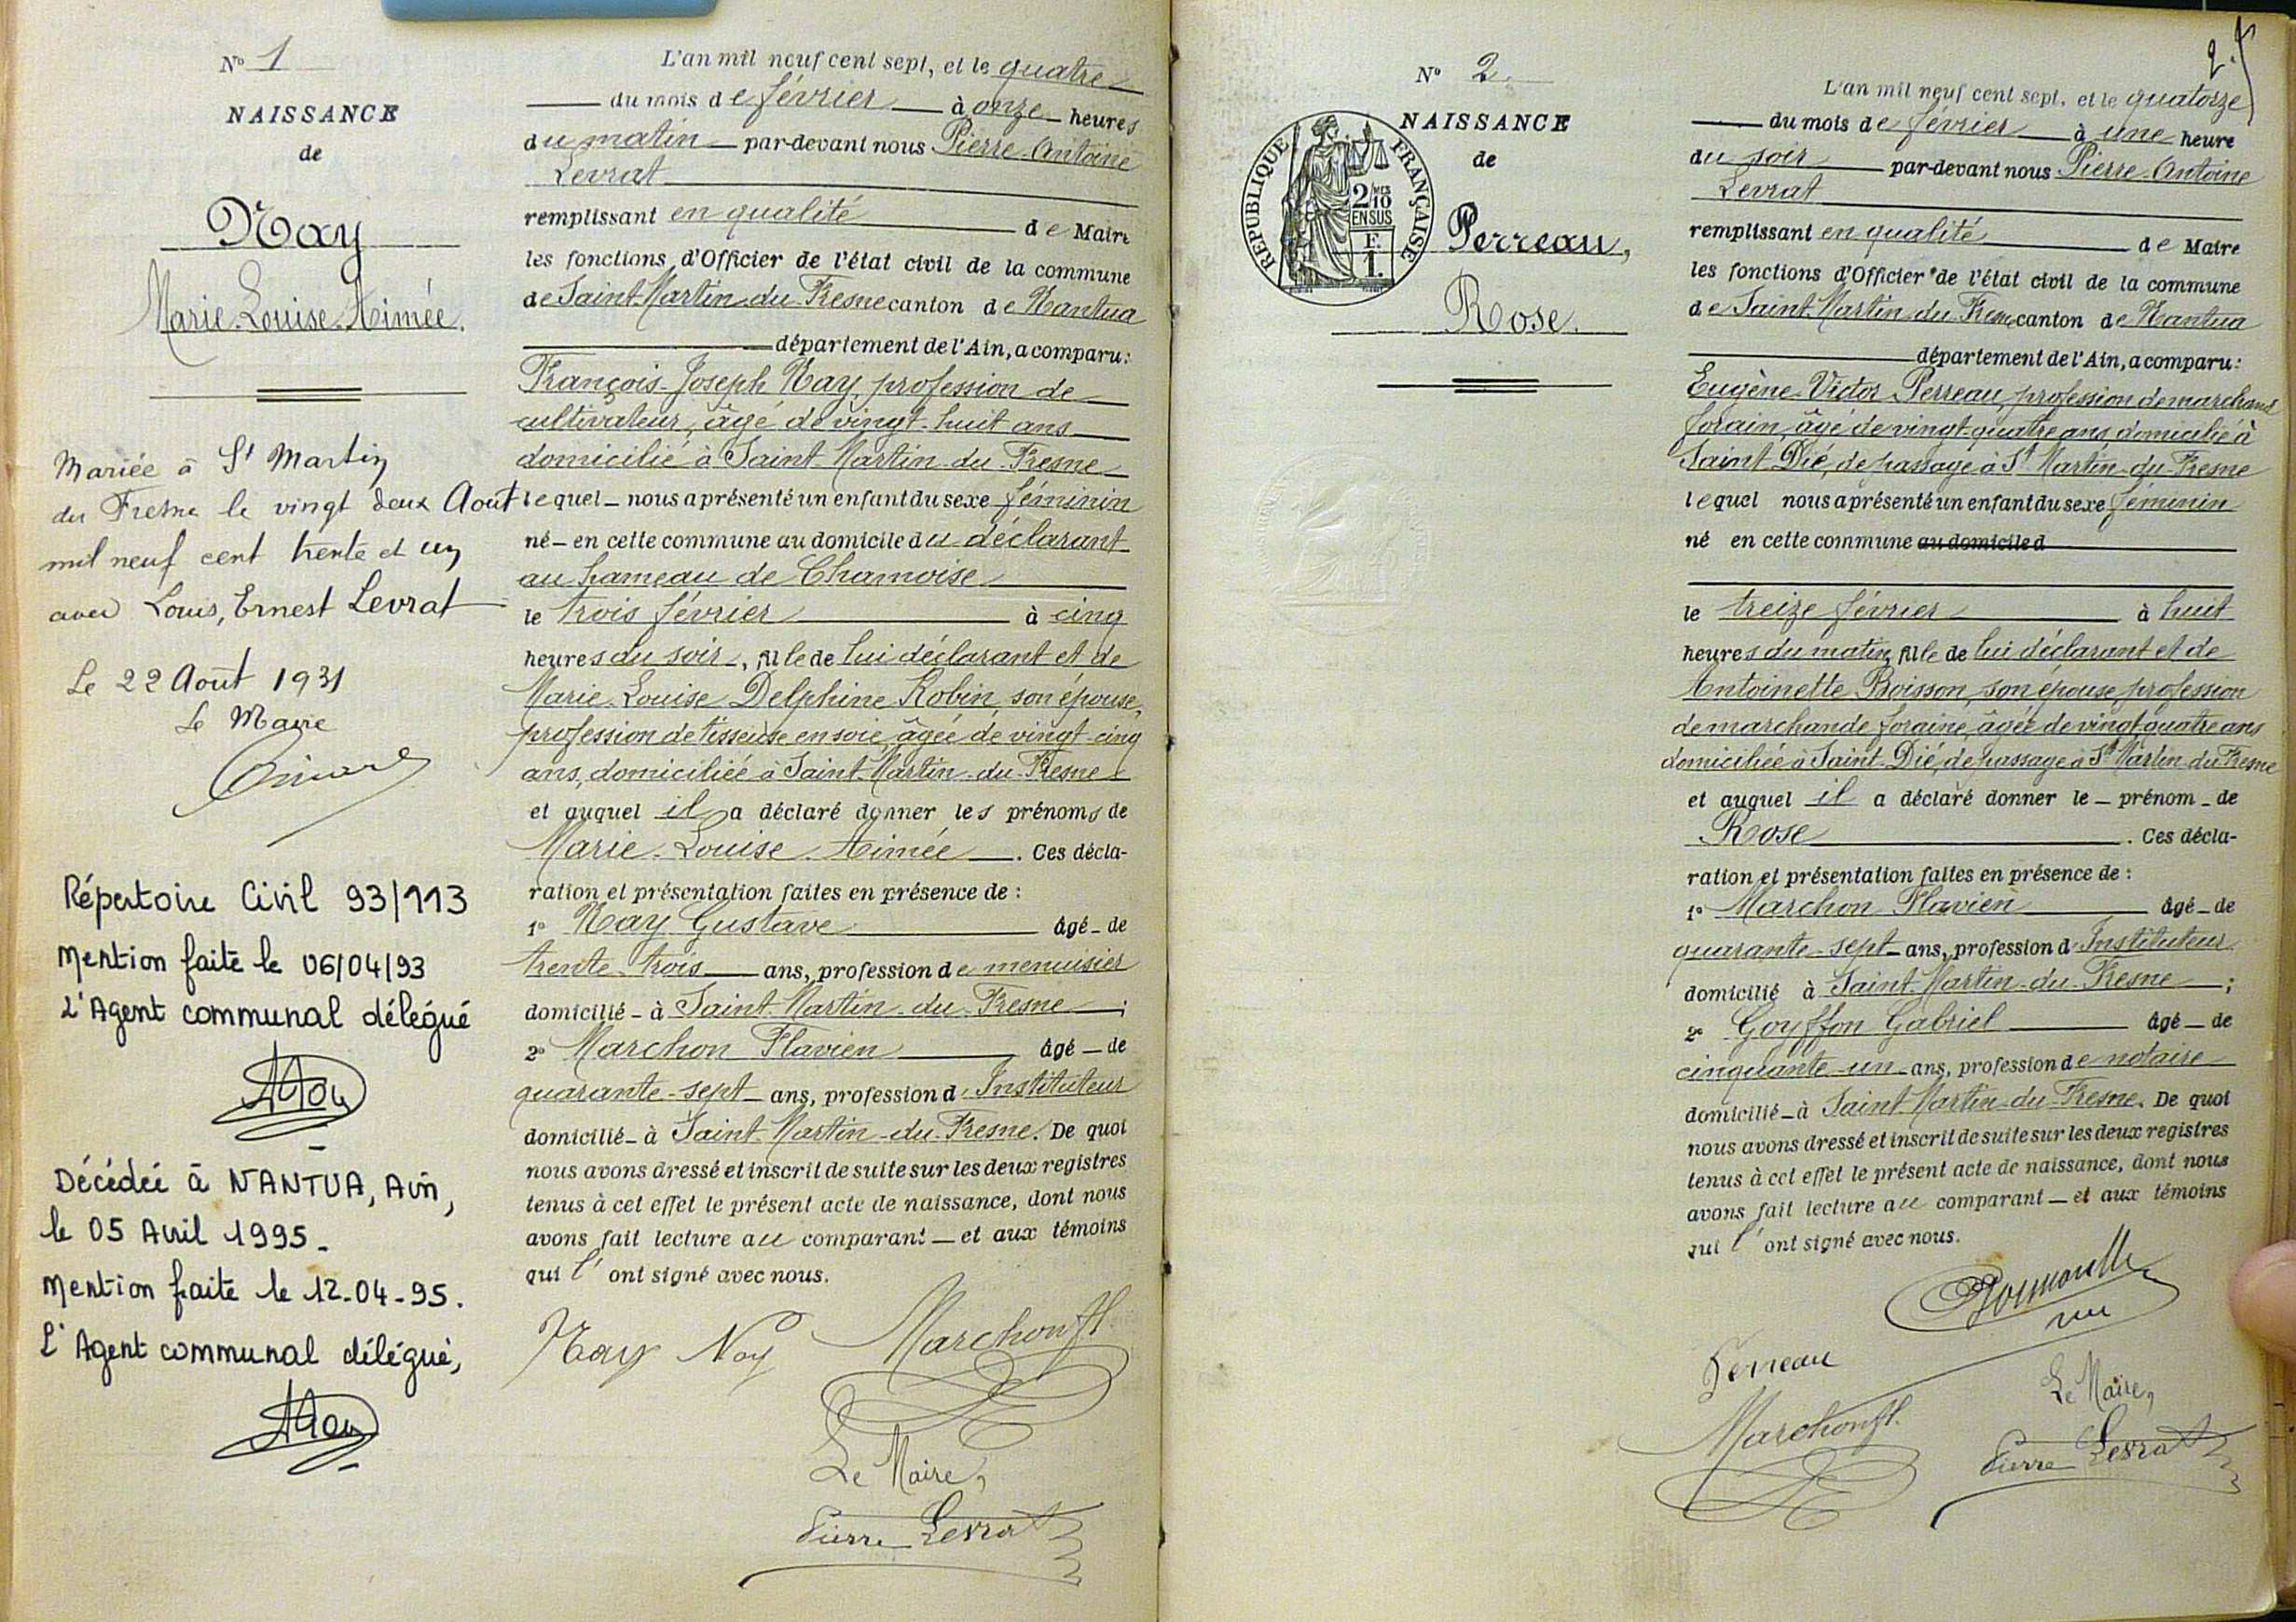 N° 1
NAISSANCE
de
Nay
Marie-Louise-Aimée.
Mariée à St Martin
du Fresne le vingt deux Août
mil neuf cent trente et un
avec Louis, Ernest Levrat
Le 22 Août 1931
Le Maire
Répertoire Civil 93/113
Mention faite le 06/04/93
L'Agent communal délégué
Décédée à NANTUA, Ain,
le 05 Avril 1995.
Mention faite le 12-04-95.
L'Agent communal délégué,
L'an mil neuf cent sept, et le quatre
du mois de février à onze heures
du matin par-devant nous Pierre-Antoine
Levrat
remplissant en qualité de Maire
les fonctions d'Officier de l'état civil de la commune
de Saint-Martin-du-Fresne canton de Nantua
département de l'Ain, a comparu:
François-Joseph Nay, profession de
cultivateur, âgé de vingt-huit ans
domicilié à Saint-Martin-du-Fresne
lequel nous a présenté un enfant du sexe féminin
né en cette commune au domicile du déclarant
au hameau de Chamoise
le trois février à cinq
heures du soir, fille de lui déclarant et de
Marie-Louise Delphine Robin, son épouse,
profession de tisseuse en soie, âgée de vingt-cinq
ans, domiciliée à Saint-Martin-du-Fresne
et auquel il a déclaré donner les prénoms de
Marie-Louise-Aimée. Ces décla-
ration et présentation faites en présence de :
1° Nay Gustave âgé de
trente-trois ans, profession de menuisier
domicilié à Saint-Martin-du-Fresne ;
2° Marchon Flavien âgé de
quarante-sept ans, profession d'Instituteur
domicilié à Saint-Martin-du-Fresne. De quoi
nous avons dressé et inscrit de suite sur les deux registres
tenus à cet effet le présent acte de naissance, dont nous
avons fait lecture au comparant et aux témoins
qui l'ont signé avec nous.
Nay Nay Marchon fl.
Le Maire,
Pierre Levrat
2.
N° 2.
NAISSANCE
de
Perreau,
Rose.
RÉPUBLIQUE FRANÇAISE
2/10 MES
EN SUS
F.
1.
L'an mil neuf cent sept, et le quatorze
du mois de février à une heure
du soir par-devant nous Pierre-Antoine
Levrat
remplissant en qualité de Maire
les fonctions d'Officier de l'état civil de la commune
de Saint-Martin-du-Fresne canton de Nantua
département de l'Ain, a comparu:
Eugène-Victor Perreau, profession de marchand
forain, âgé de vingt-quatre ans, domicilié à
Saint-Dié, de passage à St Martin-du-Fresne
lequel nous a présenté un enfant du sexe féminin
né en cette commune au domicile d
le treize février à huit
heures du matin, fille de lui déclarant et de
Antoinette Boisson, son épouse, profession
de marchande foraine, âgée de vingt-quatre ans
domiciliée à Saint-Dié, de passage à St Martin-du-Fresne
et auquel il a déclaré donner le prénom de
Rose. Ces décla-
ration et présentation faites en présence de :
1° Marchon Flavien âgé de
quarante-sept ans, profession d'Instituteur
domicilié à Saint-Martin-du-Fresne ;
2° Goyffon Gabriel âgé de
cinquante-un ans, profession de notaire
domicilié à Saint-Martin-du-Fresne. De quoi
nous avons dressé et inscrit de suite sur les deux registres
tenus à cet effet le présent acte de naissance, dont nous
avons fait lecture au comparant et aux témoins
qui l'ont signé avec nous.
Perreau
Marchon fl.
Le Maire,
Pierre Levrat